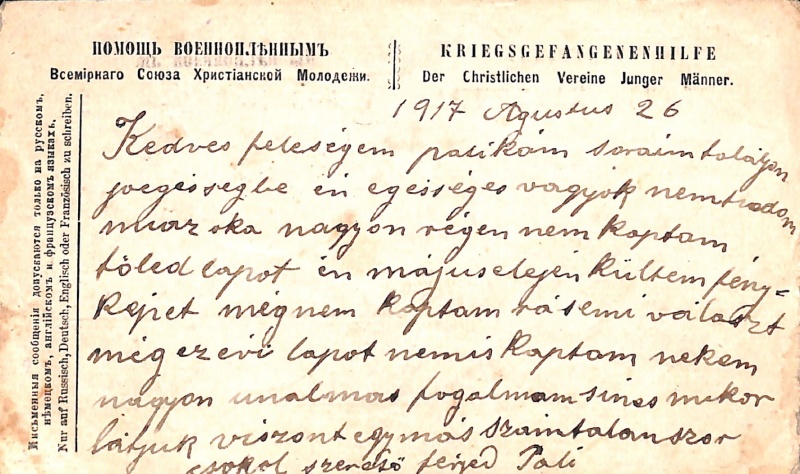 ПОМОЩЬ ВОЕННОПЛѢННЫМЪ
Всемірнаго Союза Христіанской Молодежи.
KRIEGSGEFANGENENHILFE
Der Christlichen Vereine Junger Männer.
Письменныя сообщенія допускаются только на русскомъ,
нѣмецкомъ, англійскомъ и французскомъ языкахъ.
Nur auf Russisch, Deutsch, Englisch oder Französisch zu schreiben.
1917 Agustus 26
Kedves feleségem palikám soraim találjon
joegességbe én egességes vagyok nemtudom
miaz oka nagyon régen nem kaptam
töled lapot én május elején kültem fény=
kepet mégnem kaptam rá semi választ
még ez évi lapot nemis kaptam nekem
nagyon unalmas fogalmam sincs mikor
látjuk viszont egymás szamtalanszor
csokol szerető férjed Pali